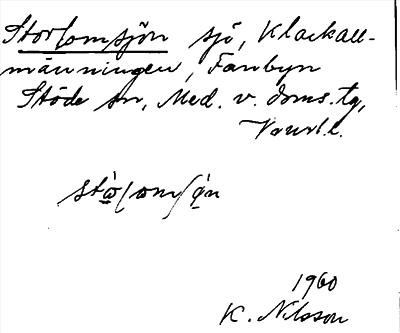 Storlomsjön sjö, Klackall-
männingen, Fanbyn
Stöde sn, Med. v. doms. tg,
stò̤lomʃö̤̀n
1960
K. Nilsson